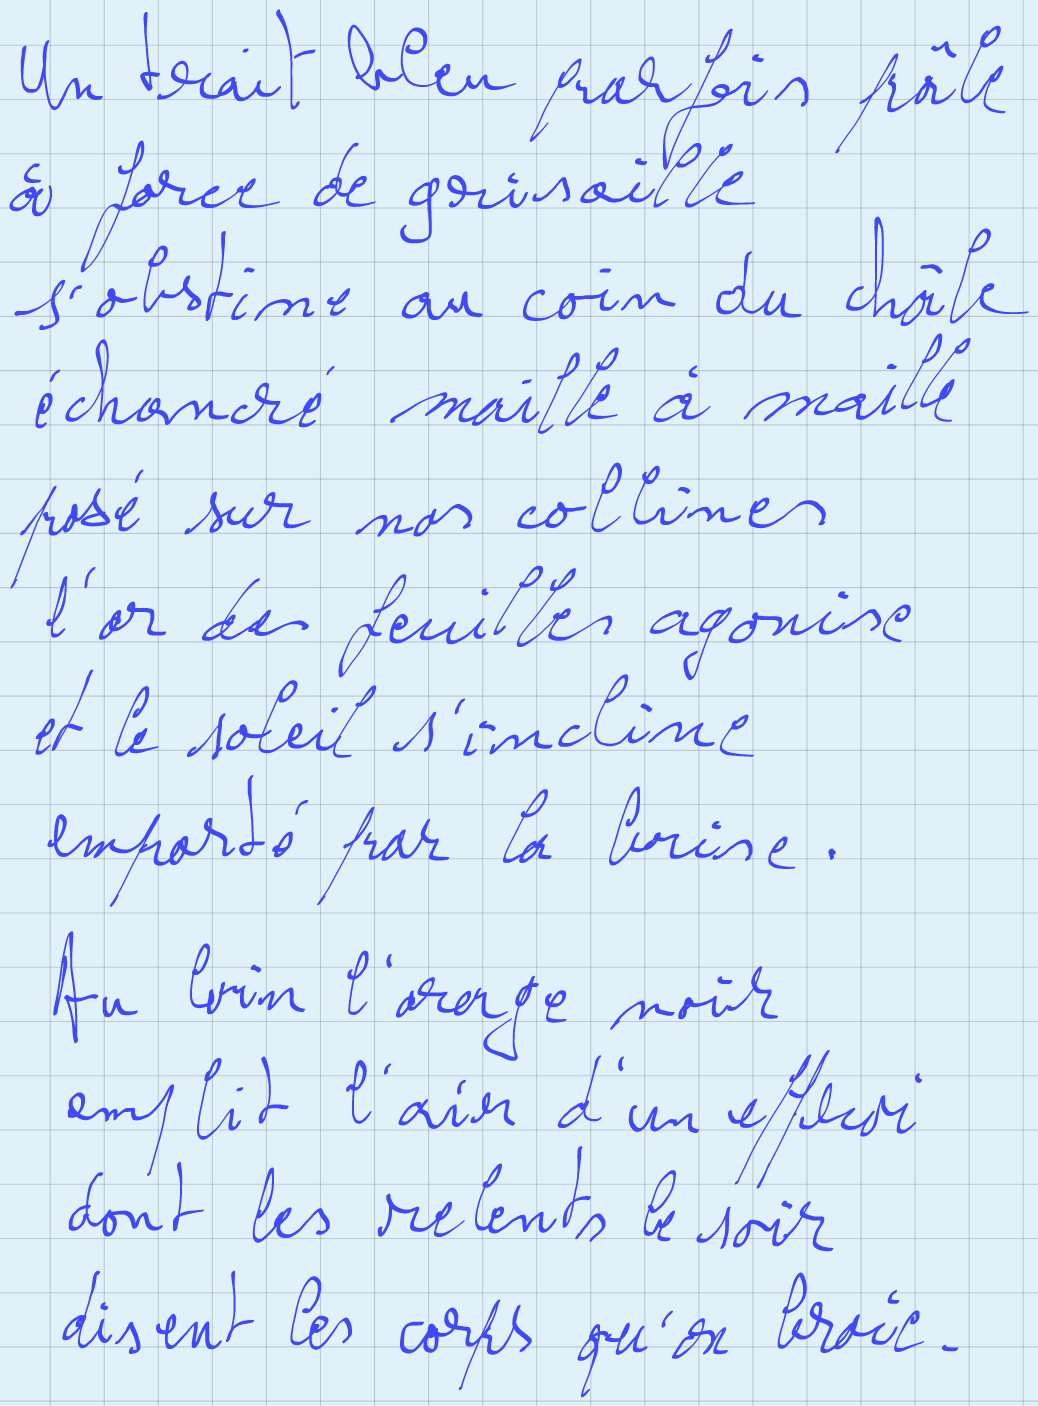 Un trait bleu parfois pâle
à force de grisaille
s'obstine au coin du châle
échancré maille à maille
posé sur nos collines
l'or des feuilles agonise
et le soleil s'incline
emporté par la brise.
Au loin l'orage noir
emplit l'air d'un effroi
dont les relents le soir
disent les corps qu'on broie.